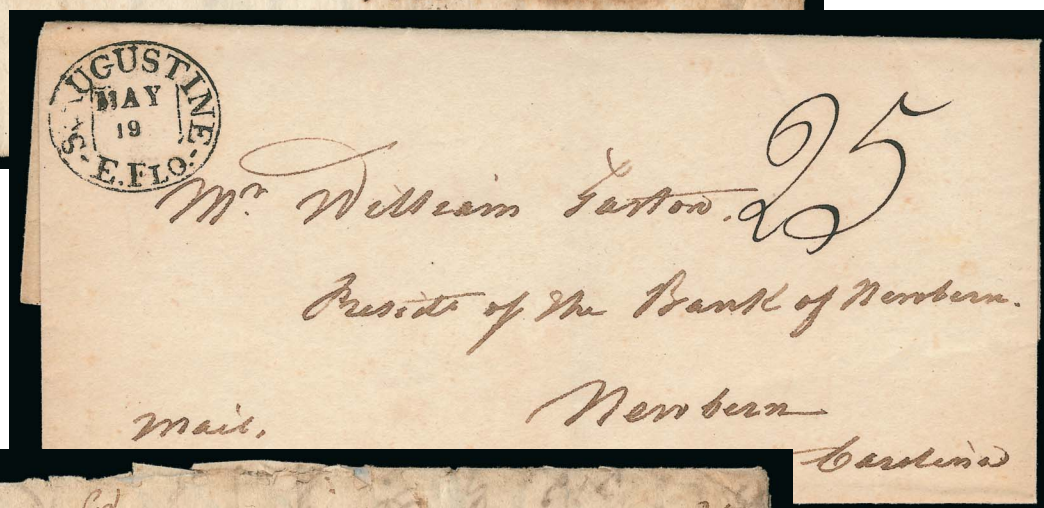 ST AUGUSTINE
MAY
19
E. FLO.
25
Mr. William Gaston.
Presidt of the Bank of Newbern.
Newbern
Mail.
Carolina